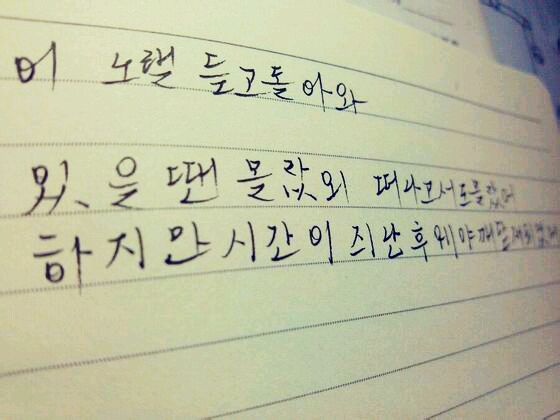 이 노랠 듣고돌아와
있을 땐 몰랐어 떠나고서도몰랐어
하지만 시간이 지난 후에야